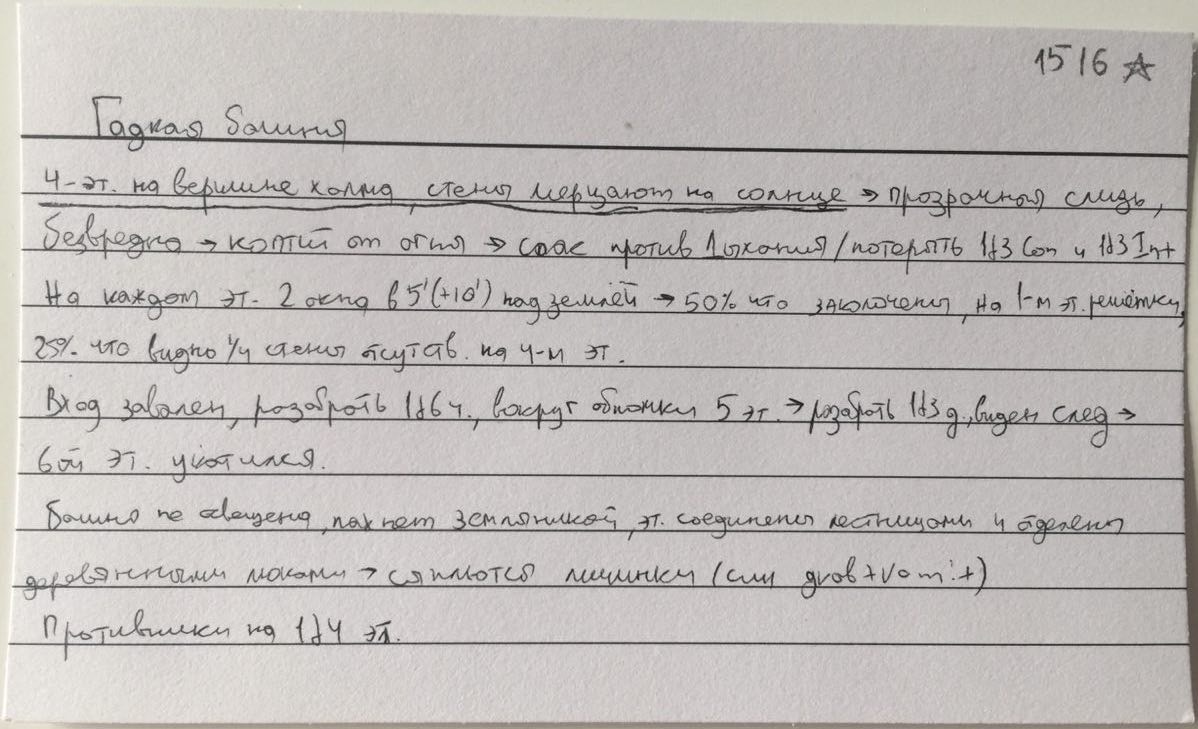 1516 ☆
Гадкая башня
4-эт. на вершине холма, стены мерцают на солнце → прозрачная слизь,
безвредна → коптит от огня → спас против Дыхания/потерять 1d3 Con и 1d3 Int
На каждом эт. 2 окна в 5'(+10') над землёй → 50% что заколочены, на 1-м эт. решётки,
25% что видно 1/4 стены отсутств. на 4-м эт.
Вход завален, разобрать 1d6 ч., вокруг обломки 5 эт. → разобрать 1d3 д., виден след →
6ой эт. укатился.
Башня не освещена, пахнет земляникой, эт. соединены лестницами и отделены
деревянными люками → сыплются личинки (сли)
Противники на 1d4 эт.